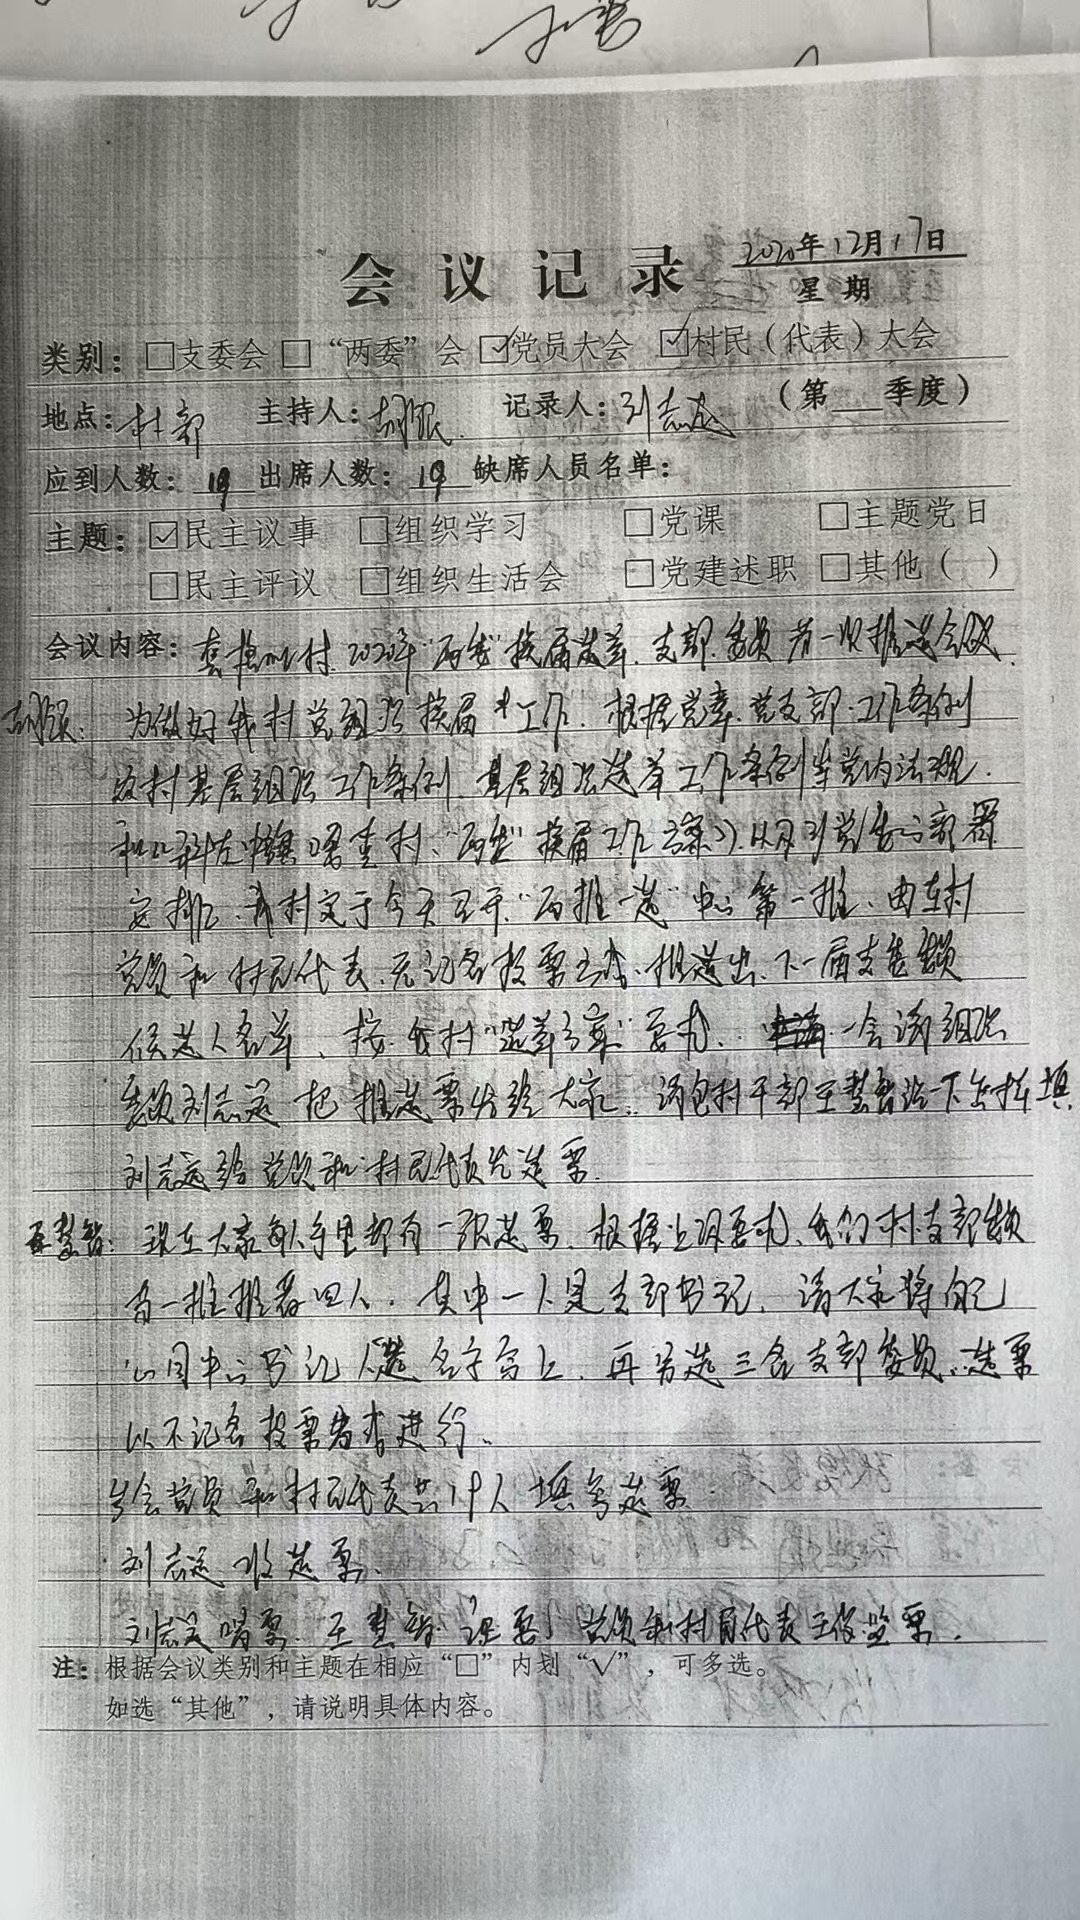 会议记录 2020年12月17日
星期
类别：□支委会 □“两委”会 ☑党员大会 ☑村民（代表）大会
地点：村部 主持人：胡银 记录人：刘志远 （第___季度）
应到人数：19 出席人数：19 缺席人员名单：
主题：☑民主议事 □组织学习 □党课 □主题党日
□民主评议 □组织生活会 □党建述职 □其他（ ）
会议内容： 村2020年“两委”换届选举，支部委员第一次推选会议
胡银：为做好我村党组织换届工作，根据党章、党支部工作条例
农村基层组织工作条例，基层组织选举工作条例等党内法规，
和 村“两委”换届工作方案 党委的部署
安排，我村定于今天召开“两推一选”中的第一推，由在村
党员和村民代表，无记名投票方式，推选出，下一届支委委员
候选人名单，按我村“选举方案”要求， 一会请组织
委员刘志远把推选票发给大家，请包村干部王慧智说一下怎样填
刘志远给党员和村民代表发选票。
王慧智：现在大家每人手里都有一张选票，根据上级要求，我们村支部委员
第一推推荐四人，其中一人是支部书记，请大家将自己
心目中的书记人选名字写上，再另选三名支部委员，选票
以不记名投票方式进行。
与会党员和村民代表共19人填写选票
刘志远收选票。
刘志远唱票，王慧智 票，党员和村民代表 监票。
注：根据会议类别和主题在相应“□”内划“√”，可多选。
如选“其他”，请说明具体内容。